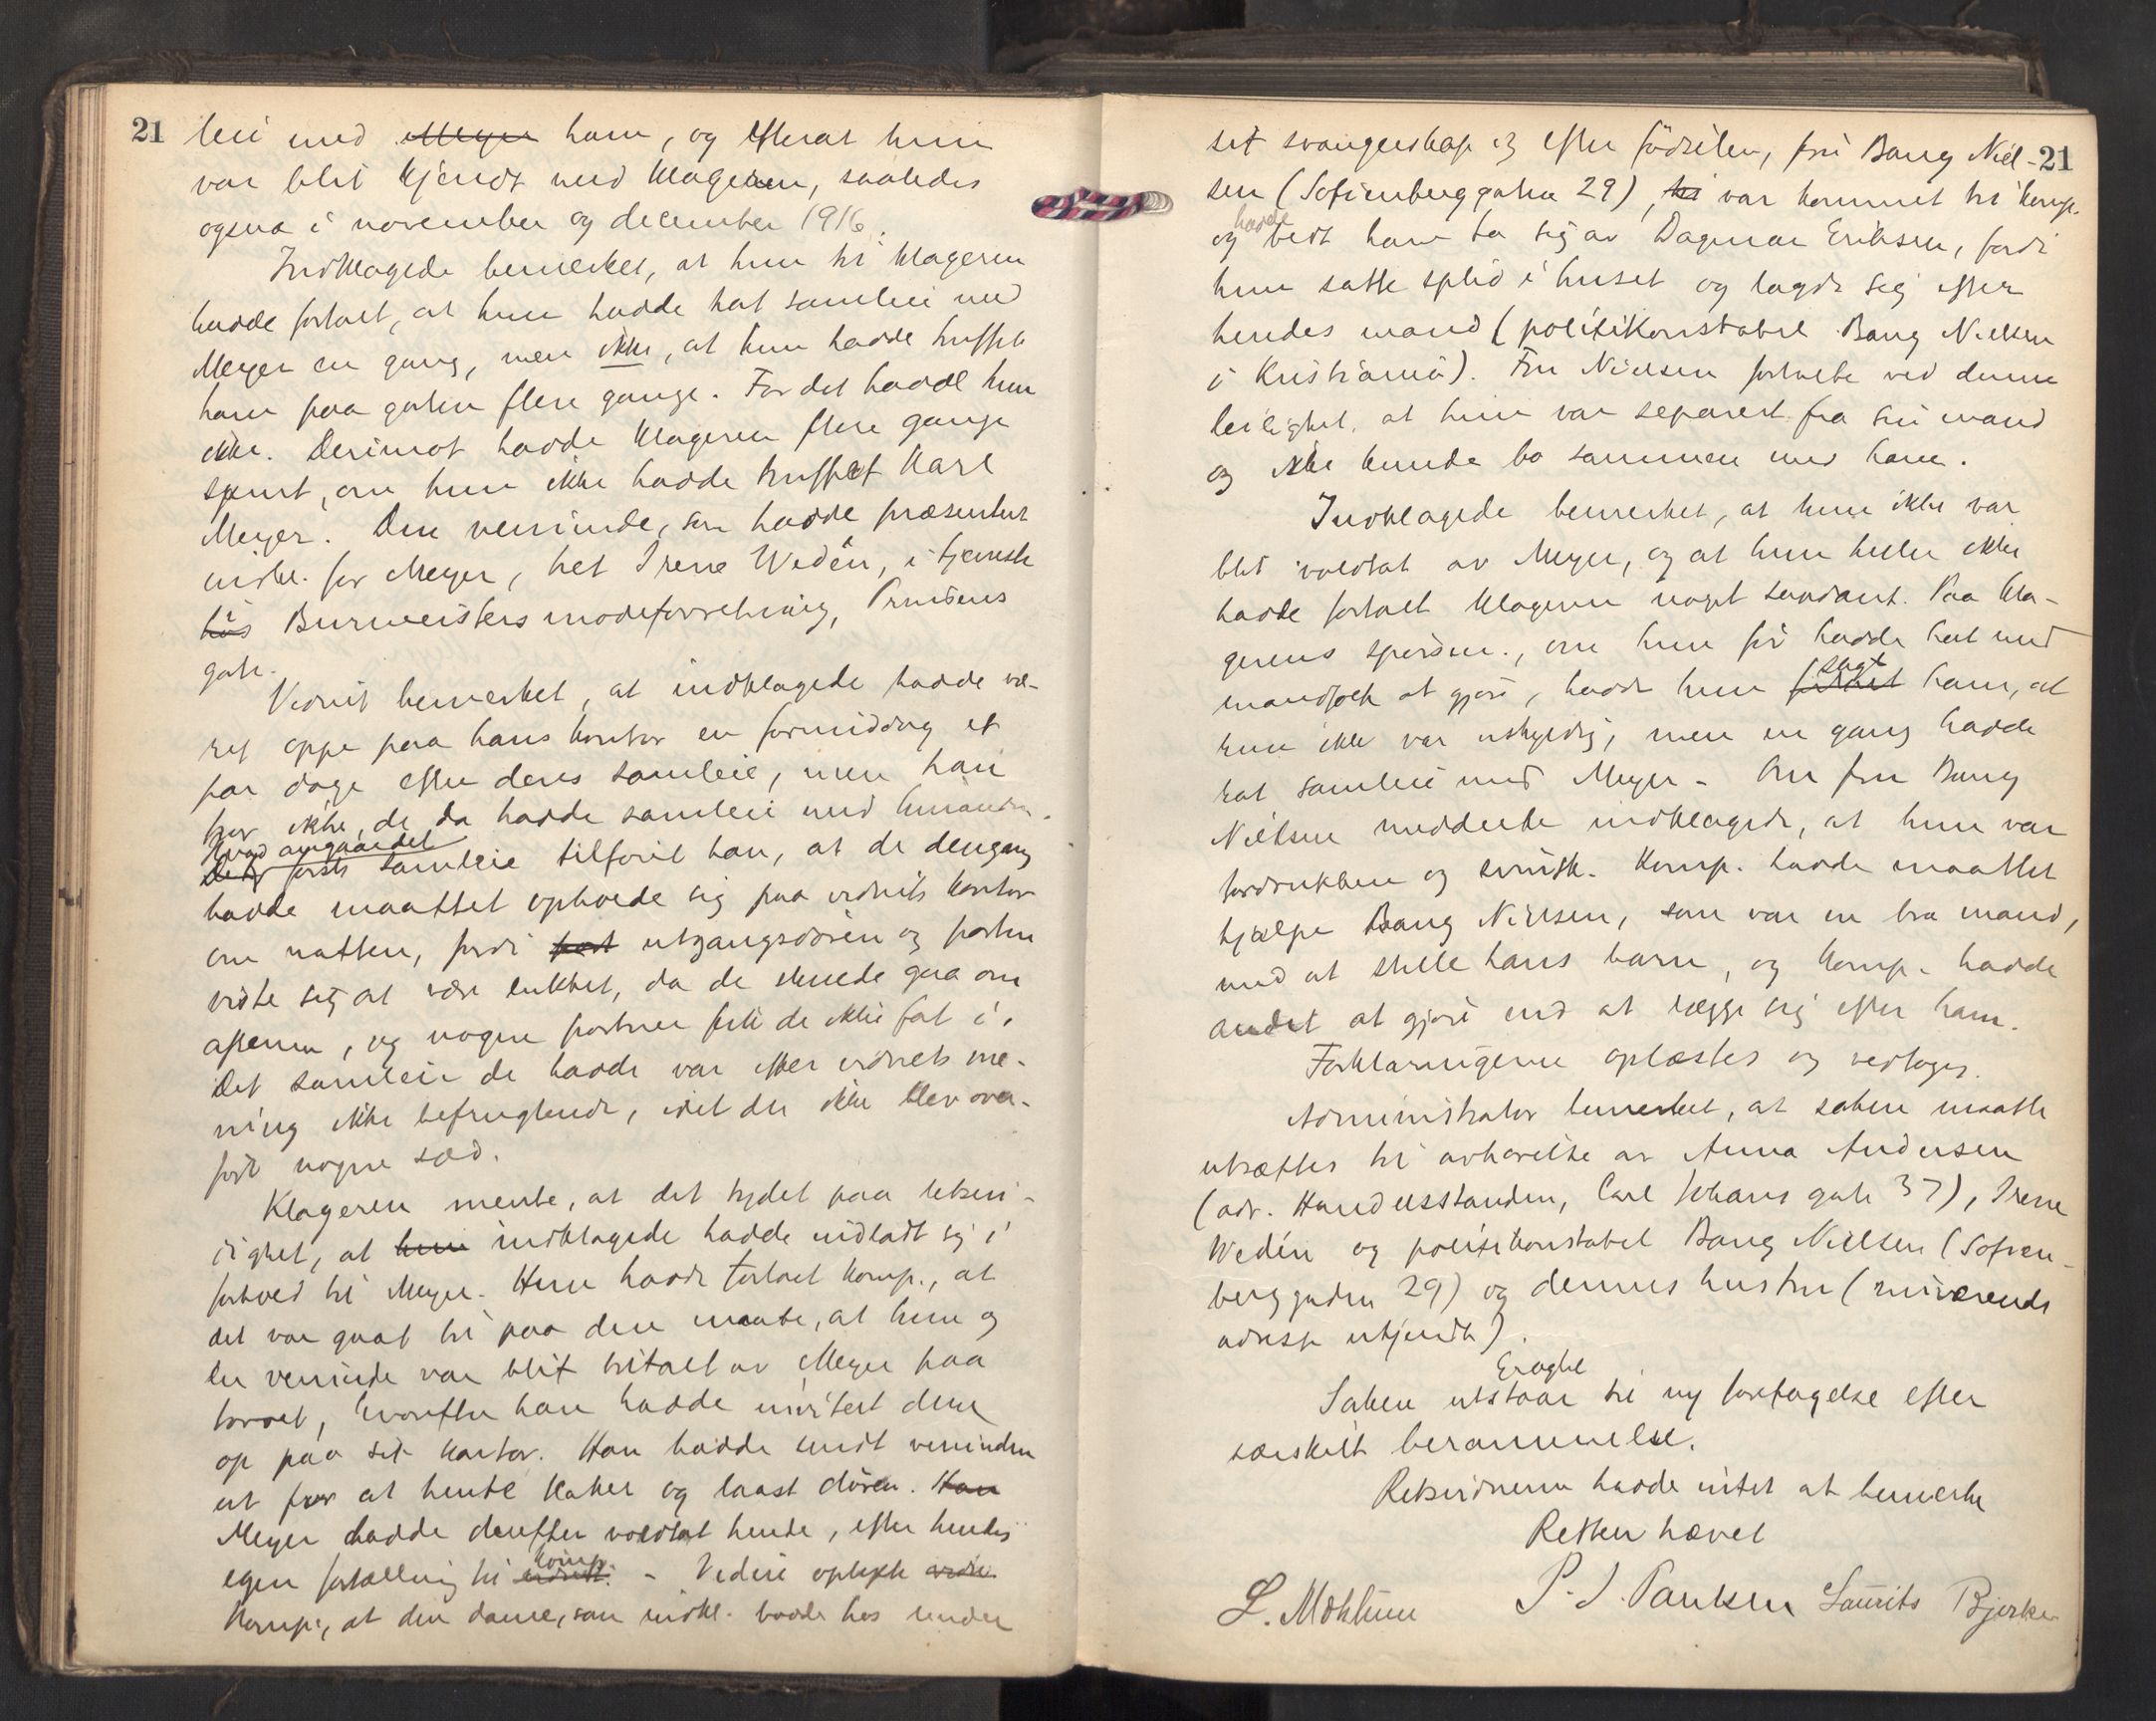 21
leie med Meyer ham, og efterat hun
var blit kjendt med klageren, saaledes
ogsaa i november og december 1916.
Indklagede bemerket, at hun til klageren
hadde fortalt, at hun hadde hat samleie med
Meyer en gang, men ikke, at hun hadde truffet
ham paa gaten flere gange. For det hadde hun
ikke. Derimot hadde klageren flere gange
spurt, om hun ikke hadde truffet Karl
Meyer. Den veninde, som hadde præsentert
indkl. for Meyer, het Irene Wedén, i tjeneste
hos Burmeisters modeforretning, Prinsens
gate.
Vidnet bemerket, at indklagede hadde væ-
ret oppe paa hans kontor en formiddag et
par dage efter deres samleie, men han
tror ikke, de da hadde samleie med hinanden.
Hvad angaar det
Det første samleie tilføiet han, at de dengang
hadde maattet opholde sig paa vidnets kontor
om natten, fordi port utgangsdøren og porten
viste sig at være lukket, da de skulde gaa om
aftenen, og nogen portner fik de ikke fat i.
Det samleie de hadde var efter vidnets me-
ning ikke befrugtende, idet der ikke blev over-
ført nogen sæd.
Klageren mente, at det tydet paa letsin-
dighet, at hun indklagede hadde indladt sig i
forhold til Meyer. Hun hadde fortalt komp., at
det var gaat til paa den maate, at hun og
en veninde var blit tiltalt av Meyer paa
torvet, hvorefter han hadde invitert dem
op paa sit kontor. Han hadde sendt veninden
ut for at hente kaker og laast døren. Han
Meyer hadde derefter voldtat hende, efter hendes
komp.
egen fortælling til vidnet. – Videre oplyste
Komp., at den dame, som indkl. bodde hos under
21
sit svangerskap og efter fødselen, fru Bang Niel-
sen (Sofienberggaten 29), til var kommet til komp.
hadde
og bedt ham ta sig av Dagmar Eriksen, fordi
hun satte splid i huset og lagde sig efter
hendes mand (politikonstabel Bang Nielsen
i Kristiania). Fru Nielsen fortalte ved denne
leilighet, at hun var separert fra sin mand
og ikke kunde bo sammen med ham.
Indklagede bemerket, at hun ikke var
blit voldtat av Meyer, og at hun heller ikke
hadde fortalt klageren noget saadant. Paa kla-
gerens spørsm., om hun før hadde hat med
sagt
mandfolk at gjøre, hadde hun ham, at
hun ikke var uskyldig, men en gang hadde
hat samleie med Meyer. – Om fru Bang
Nielsen meddelte indklagede, at hun var
fordrukken og svinsk. Komp. hadde maattet
hjælpe Bang Nielsen, som var en bra mand,
med at stelle hans barn, og komp. hadde
andet at gjøre end at lægge sig efter ham.
Forklaringerne oplæstes og vedtoges.
Administrator bemerket, at saken maatte
utsættes til avhørelse av Anna Andersen
(adr. Handelsstanden, Carl Johans gate 37), Irene
Wedén og politikonstabel Bang Nielsen (Sofien-
berggaden 29) og dennes hustru (nuværende
adresse ukjendt).
Eragtet
Saken utstaar til ny foretagelse efter
særskilt berammelse.
Retsvidnerne hadde intet at bemerke
Retten hævet
P. I. Paulsen Laurits Bjerke